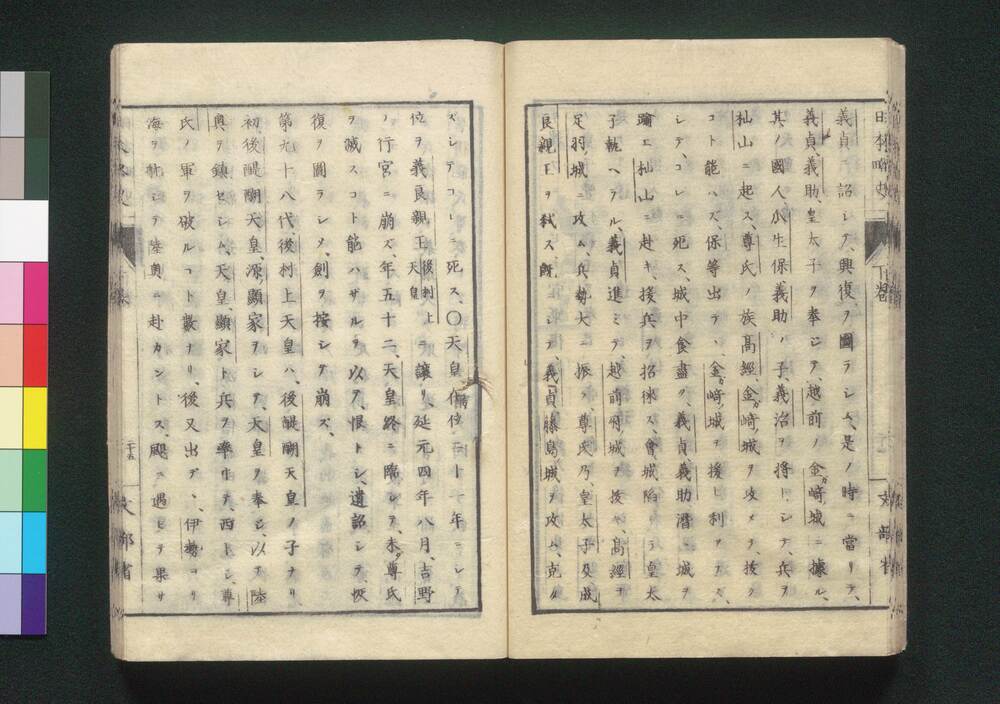 義貞ニ詔シテ、興復ヲ圖ラシム、是ノ時ニ當リテ、
義貞、義助、皇太子ヲ奉ジテ、越前ノ金崎城ニ據ル、
其ノ國人、小生保、義助ノ子、義治ヲ將トシテ、兵ヲ
杣山ニ起ス、尊氏ノ族、高經、金崎城ヲ攻メテ、拔ク
コト能ハズ、保等出テ、金崎城ヲ援ヒ利アラズ、
シテ、コレニ死ス、城中食盡ク、義貞、義助潛ニ城ヲ
踰エ、杣山ニ赴キ、援兵ヲ招徠ス、會城陷リテ皇太
子執ヘラル、義貞進ミテ、越前府城ヲ拔キ、高經ヲ
足羽城ニ攻ム、兵勢大ニ振フ、尊氏乃皇太子及成
良親王ヲ弑ス、既ニシテ、義貞藤島城ヲ攻ム、克タ
日本略史
下卷
文部省
ズシテコレニ死ス、〇天皇在位二十一年ニシテ
位ヲ義良親王後村上天皇ニ讓リ、延元四年八月、吉野
ノ行宮ニ崩ズ、年五十二、天皇終ニ臨ミテ、未尊氏
ヲ滅スコト能ハザルヲ以テ、恨トシ、遺詔シテ、恢
復ヲ圖ラシメ、劍ヲ按シテ崩ズ、
第九十八代、後村上天皇ハ、後醍醐天皇ノ子ナリ
初後醍醐天皇、源顯家ヲシテ、天皇ヲ奉ジ、以テ陸
奧ヲ鎮セシム、天皇、顯家ト兵ヲ率ヰテ、西上シ、尊
氏ノ軍ヲ破ルコト數ナリ、後又出デ、伊勢ヨリ
海ヲ航シテ陸奧ニ赴カントス、颶ニ遇ヒテ果サ
二十五
文部省